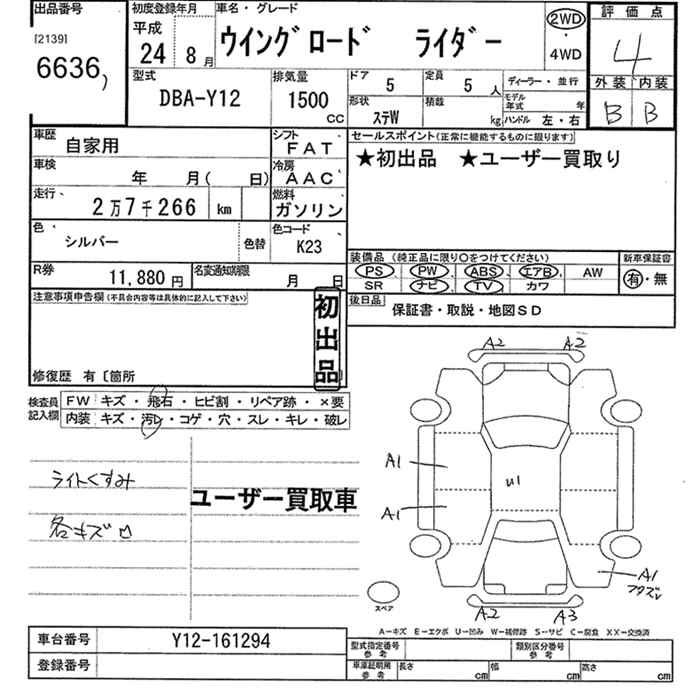 出品番号 初度登録年月 車名・グレード 2WD ・ 4WD 評価点
[2139] 6636 平成 24年 8月 ウイングロード ライダー 4
型式 排気量 ドア 5 定員 5人 ディーラー・並行 外装 内装
DBA-Y12 1500 CC 形状 ステW 積載 kg モデル年式 年 ハンドル 左・右 B B
車歴 自家用 シフト FAT セールスポイント(正常に機能するものに限ります)
車検 年 月( 日) 冷房 AAC ★初出品 ★ユーザー買取り
走行 2万7千266 km 燃料 ガソリン
色 シルバー 色替 色コード K23
装備品 (純正品に限り○をつけてください) 新車保証書
PS PW ABS エアB AW 有・無
SR ナビ TV カワ
R券 11,880円 名変通知期限 月 日
後日品 保証書・取説・地図SD
注意事項申告欄(不具合内容等は具体的に記入して下さい)
初出品
修復歴 有〔箇所 〕
検査員記入欄 FW キズ・飛石・ヒビ割・リペア跡・×要
内装 キズ・汚レ・コゲ・穴・スレ・キレ・破レ
A2 A2
ライトくすみ
A1
U1
ユーザー買取車
A1
各キズ凹
A1
スペア
A2 A3
A-キズ E-エクボ U-凹み W-補修跡 S-サビ C-腐食 XX-交換済
車台番号 Y12-161294
登録番号
型式指定番号 参考 類別区分番号 参考
車庫証明用 参考 長さ cm 幅 cm 高さ cm